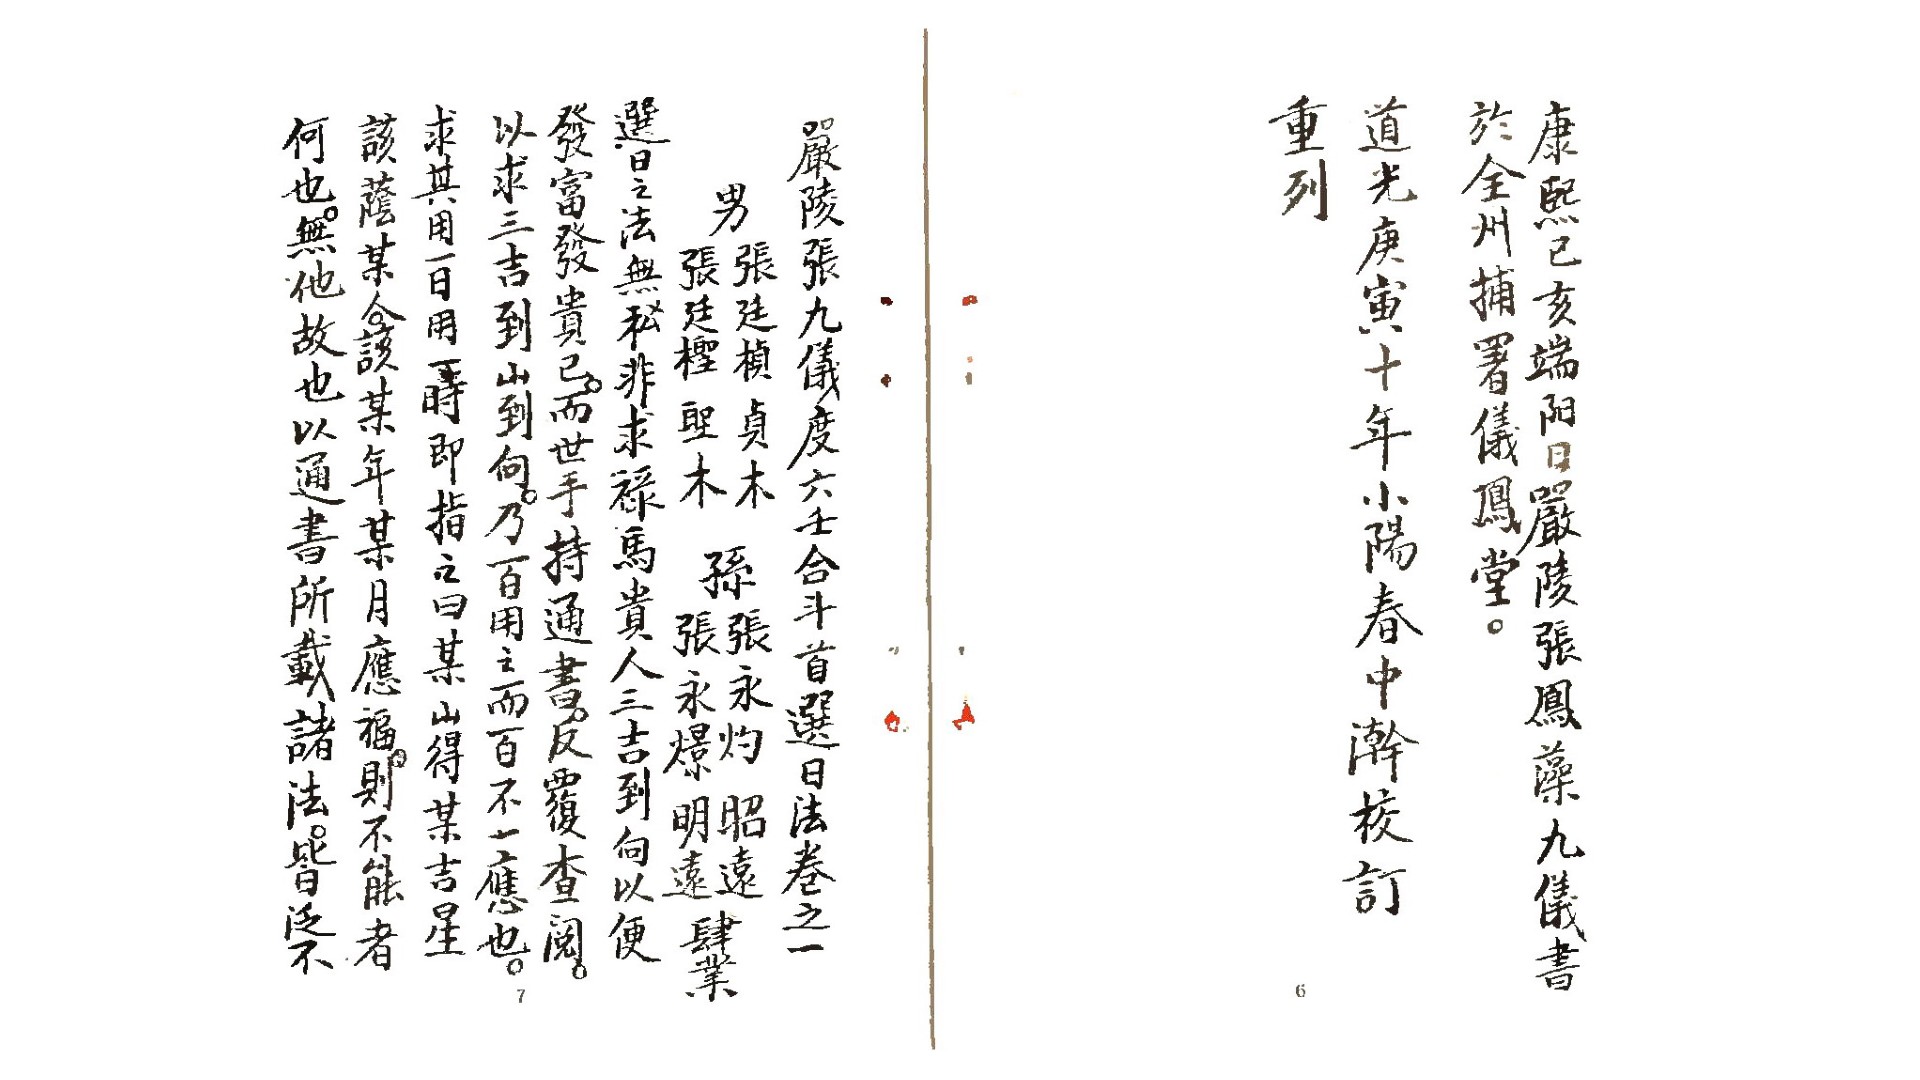 康熙己亥端阳日嚴陵張鳳藻九儀書
於全州捕署儀鳳堂。
道光庚寅十年小陽春中澣校訂
重列
6
嚴陵張九儀度六壬合斗首選日法卷之一
男 張廷楨 貞木 孫 張永灼 昭遠
張廷檉 聖木 張永爆 明遠 肆業
選日之法無私非求祿馬貴人三吉到向以便
發富發貴已。而世手持通書。反覆查阅。
以求三吉到山到向。乃百用之而百不一應也。
求其用一日用一時即指之曰某山得某吉星
該蔭某人。該某年某月應福。則不能者
何也。無他故也以通書所載諸法。皆泛不
7